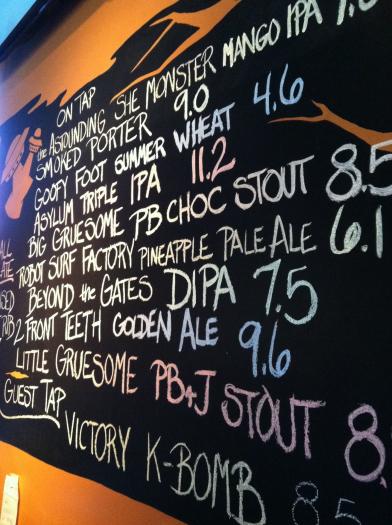 ON TAP
the ASTOUNDING SHE MONSTER MANGO IPA 7.
SMOKED PORTER 9.0
GOOFY FOOT SUMMER WHEAT 4.6
ASYLUM TRIPLE IPA 11.2
BIG GRUESOME PB CHOC STOUT 8.5
ROBOT SURF FACTORY PINEAPPLE PALE ALE 6.1
BEYOND the GATES DIPA 7.5
2 FRONT TEETH GOLDEN ALE 9.6
LITTLE GRUESOME PB+J STOUT 8.
GUEST TAP
VICTORY K-BOMB 8.5